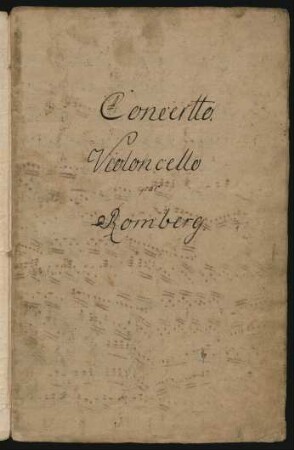 Concertto.
Violoncello
par
Romberg